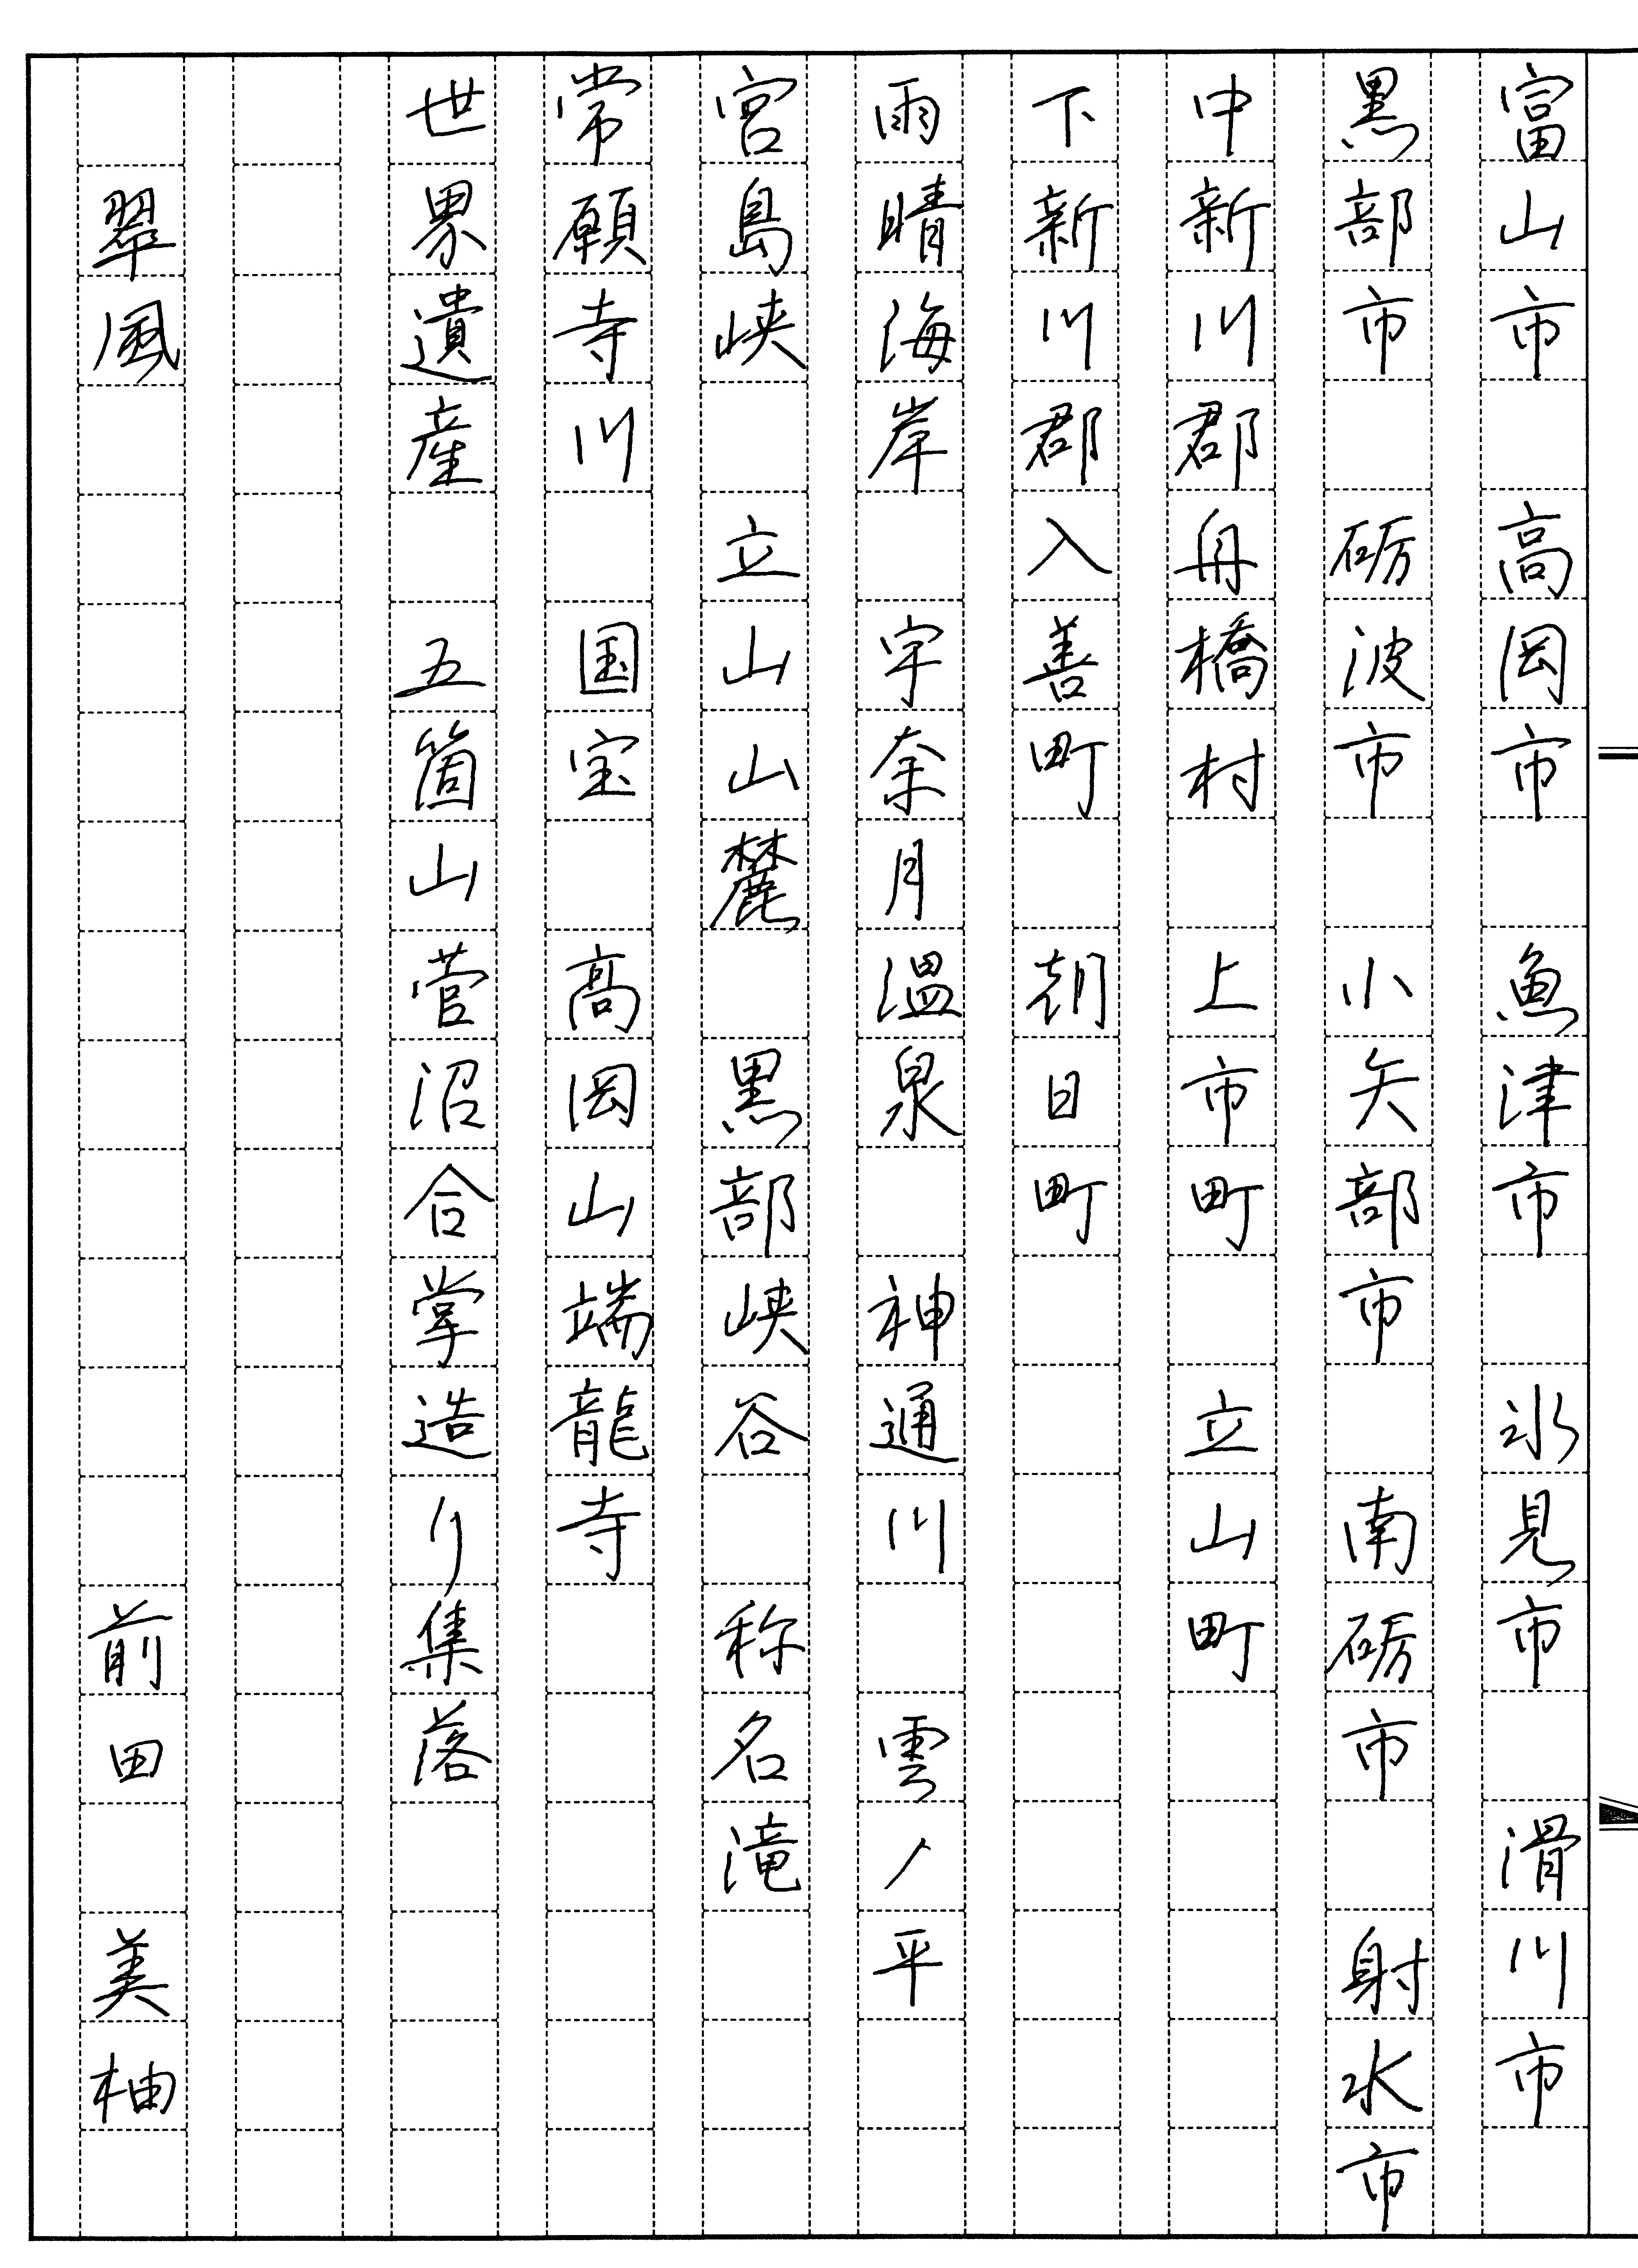 富山市　高岡市　魚津市　氷見市　滑川市
黒部市　砺波市　小矢部市　南砺市　射水市
中新川郡舟橋村　上市町　立山町
下新川郡入善町　朝日町
雨晴海岸　宇奈月温泉　神通川　雲ノ平
宮島峡　立山山麓　黒部峡谷　称名滝
常願寺川　国宝　高岡山瑞龍寺
世界遺産　五箇山菅沼合掌造り集落
翠風　前田　美柚